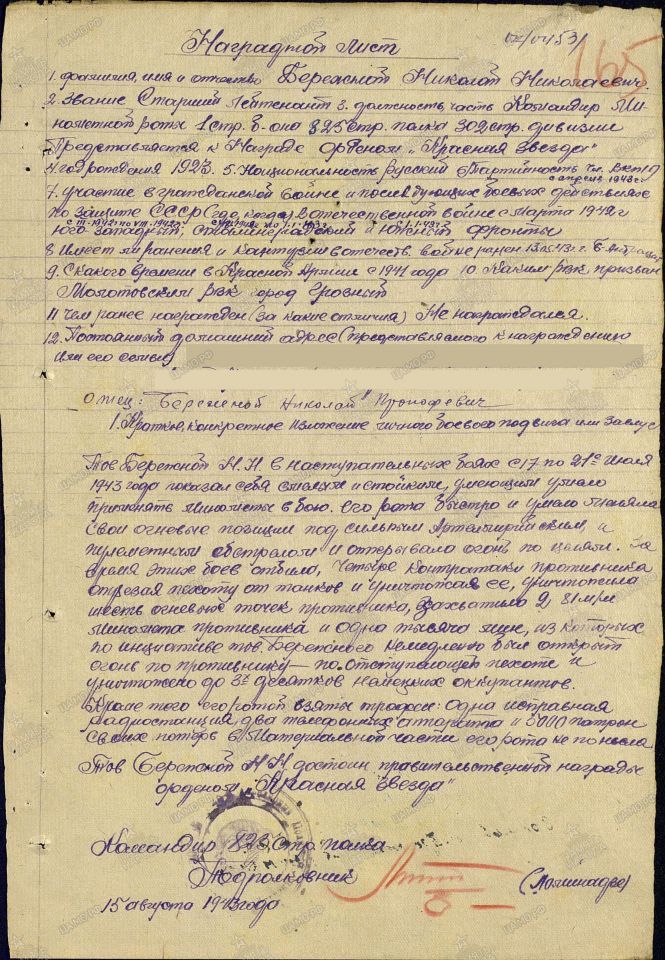 Наградной Лист
165
1. фамилия, имя и отчество Бережной Николай Николаевич.
2. Звание Старший Лейтенант 3. должность часть Командир Ми-
нометной роты 1 стр. б-она 825 стр. полка 302 стр. дивизии
Представляется к Награде орденом „Красная Звезда"
4. год рождения 1923. 5. Национальность русский 6. Партийность чл. ВКП(б)
с апреля 1943 г.
7. участие в гражданской войне и последующих боевых действиях
по защите СССР (где, когда) в отечественной войне с Марта 1942 г
Юго-Западный, Сталинградский и Южный фронты
8. Имеет ли ранения и контузии в отечеств. войне ранен
9. С какого времени в Красной Армии с 1941 года 10. Каким РВК призван
Молотовским РВК город Грозный
11. Чем ранее награжден (за какие отличия) Не награждался.
12. Постоянный домашний адрес (представляемого к награждению
или его семьи)
отец: Бережной Николай Прокофевич
1. Краткое, конкретное изложение личного боевого подвига или заслуг
Тов Бережной Н.Н. в наступательных боях с 17 по 21е Июля
1943 года показал себя смелым и стойким, умеющим умело
применять минометы в бою. Его рота быстро и умело меняла
свои огневые позиции под сильным Артеллирийским, и
пулеметным обстрелом и открывала огонь по целям. За
время этих боев отбила, четыре контратаки противника
отрезая пехоту от танков и уничтожая ее, уничтожила
шесть огневых точек противника, захватила 2, 81 м/м
миномета противника и одна тысяча мин, из которых
по инициативе тов. Бережного немедленно был открыт
огонь по противнику – по отступающей пехоте и
уничтожено до 3х десятков немецких оккупантов.
Кроме того его ротой взяты трофеи: одна исправная
радиостанция два телефонных аппарата и 5000 патрон
Своих потерь в материальной части его рота не понесла
Тов Бережной Н Н достоин правительственной награды
орденом "Красная Звезда"
Командир 825 Стр. полка
Подполковник
15 августа 1943 года